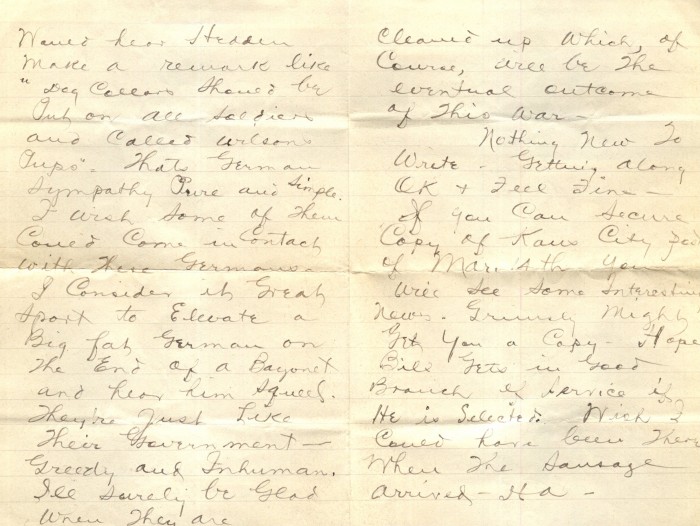 Would hear Hedden
Make a remark like
"Dog Collars Should be
Put on all Soldiers
and Called Wilsons
Pups". Thats German
Sympathy Pure and Simple.
I Wish Some of Them
Could Come in Contact
with These Germans.
I Consider it Great
Sport to Elevate a
Big fat German on
The End of a Bayonet
and hear him Squeel.
They're Just Like
Their Government—
Greedy and Inhuman.
I'll Surely be Glad
When They are
Cleaned up Which, of
Course, Will be The
eventual outcome
of This War—
Nothing New To
Write - Getting along
OK + Feel Fine—
If you Can Secure
Copy of Kans City
of Mar. 14th You
Will See Some Interesting
News. Might
Get You a Copy - Hope
Bill Gets in Good
Branch of Service if
He is Selected. Wish I
Could have been There
When The Sausage
arrived - Ha -